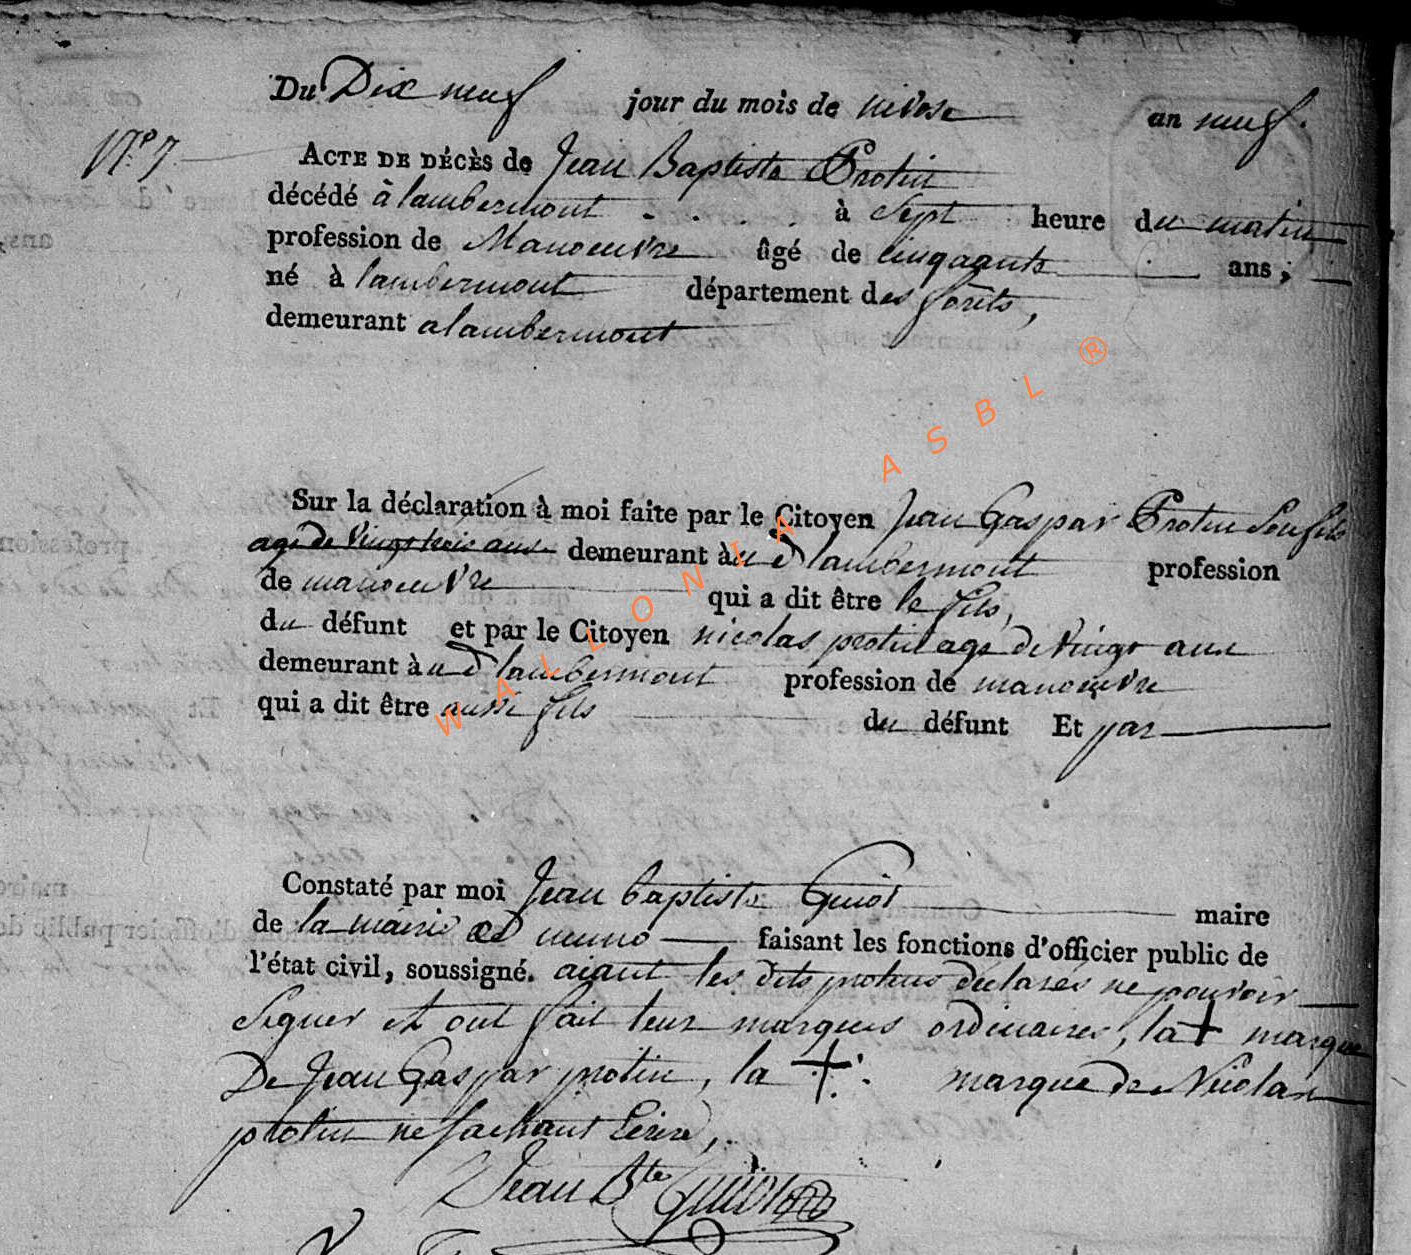 Du Dix neuf jour du mois de nivose an neuf.
N.º 7. Acte de décès de Jean Baptiste Protin
décédé à lambermont . . . . à Sept heure du matin
profession de Manoeuvre âgé de cinqaante ans ;
né à lambermont département des forêts,
demeurant a lambermont
Sur la déclaration à moi faite par le Citoyen Jean Gaspar Protin Son fils
agé de vingt trois ans demeurant à u d lambermont profession
de manoeuvre qui a dit être le fils,
du défunt et par le Citoyen nicolas protin agé de vingt ans
demeurant à u d lambermont profession de manoeuvre
qui a dit être aussi fils du défunt Et par
Constaté par moi Jean baptiste Guiot maire
de la mairie de muno faisant les fonctions d'officier public de
l'état civil, soussigné. aiant les dits protins déclarés ne pouvoir
Signer et ont fait leur marques ordinaires, la + marque
De Jean Gaspar protin, la + marque de Nicolas
protin ne sachant Ecrire,
Jean Bte Guiot
WALLONIA ASBL ®